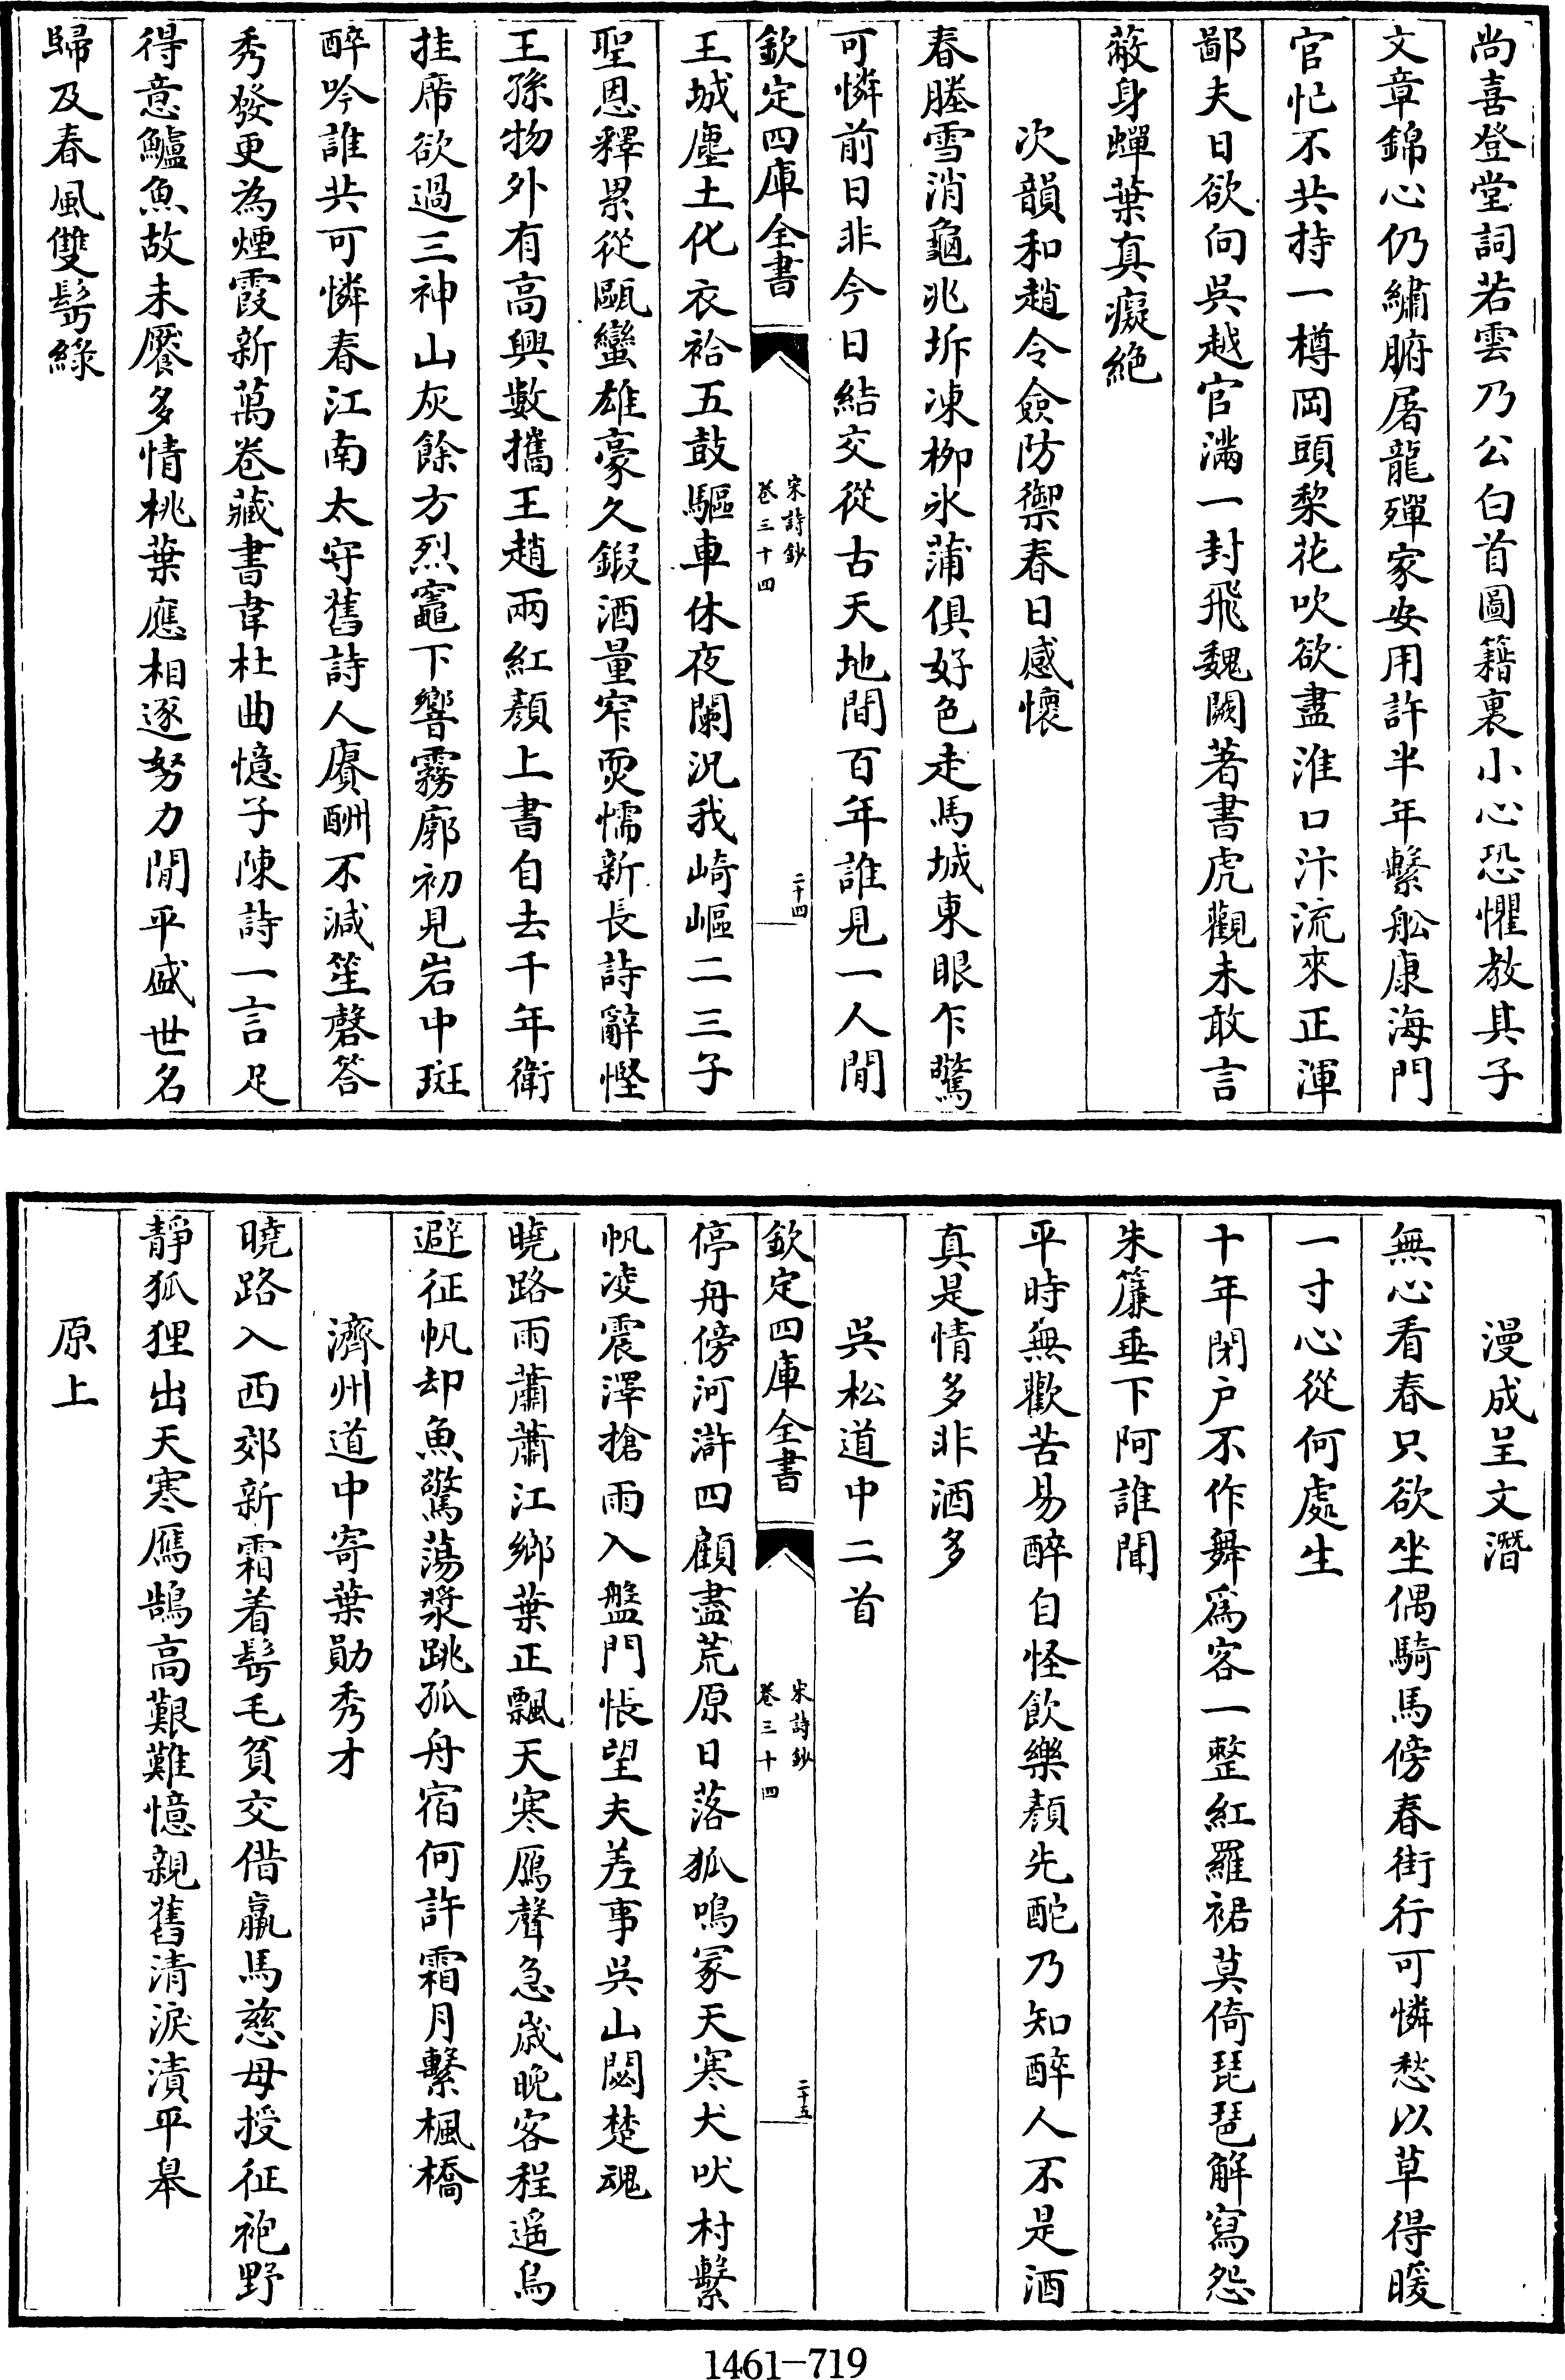 尚喜登堂詞若雲乃公白首圖籍裏小心恐懼教其子
文章錦心仍繡腑屠龍殫家安用許半年繫舩康海門
官忙不共持一樽岡頭梨花吹欲盡淮口汴流來正渾
鄙夫日欲向吳越官滿一封飛魏闕著書虎觀未敢言
蔽身蟬葉真癡絕
次韻和趙令僉防禦春日感懷
春塍雪消龜兆坼凍柳氷蒲俱好色走馬城東眼乍驚
可憐前日非今日結交從古天地間百年誰見一人閒
欽定四庫全書
宋詩鈔
卷三十四
二十四
王城塵土化衣袷五鼓驅車休夜闌況我崎嶇二三子
聖恩釋累從甌蠻雄豪久鍛酒量窄耎懦新長詩辭慳
王孫物外有高興數攜王趙兩紅顏上書自去千年衛
挂席欲過三神山灰餘方烈竈下響霧廓初見岩中斑
醉吟誰共可憐春江南太守舊詩人賡酬不減笙磬答
秀發更為煙霞新萬卷藏書韋杜曲憶子陳詩一言足
得意鱸魚故未饜多情桃葉應相逐努力閒平盛世名
歸及春風雙髩綠
漫成呈文潛
無心看春只欲坐偶騎馬傍春街行可憐愁以草得暖
一寸心從何處生
十年閉户不作舞爲客一整紅羅裙莫倚琵琶解寫怨
朱簾垂下阿誰聞
平時無歡苦易醉自怪飲樂顏先酡乃知醉人不是酒
真是情多非酒多
吳松道中二首
欽定四庫全書
宋詩鈔
卷三十四
二十五
停舟傍河滸四顧盡荒原日落狐鳴冢天寒犬吠村繫
帆凌震澤搶雨入盤門悵望夫差事吳山閟楚魂
曉路雨蕭蕭江鄉葉正飄天寒鴈聲急歲晚客程遥烏
避征帆却魚驚蕩漿跳孤舟宿何許霜月繫楓橋
濟州道中寄葉勛秀才
曉路入西郊新霜着髩毛貧交借羸馬慈母授征袍野
靜狐狸出天寒鴈鵠高艱難憶親舊清淚漬平皋
原上
1461—719